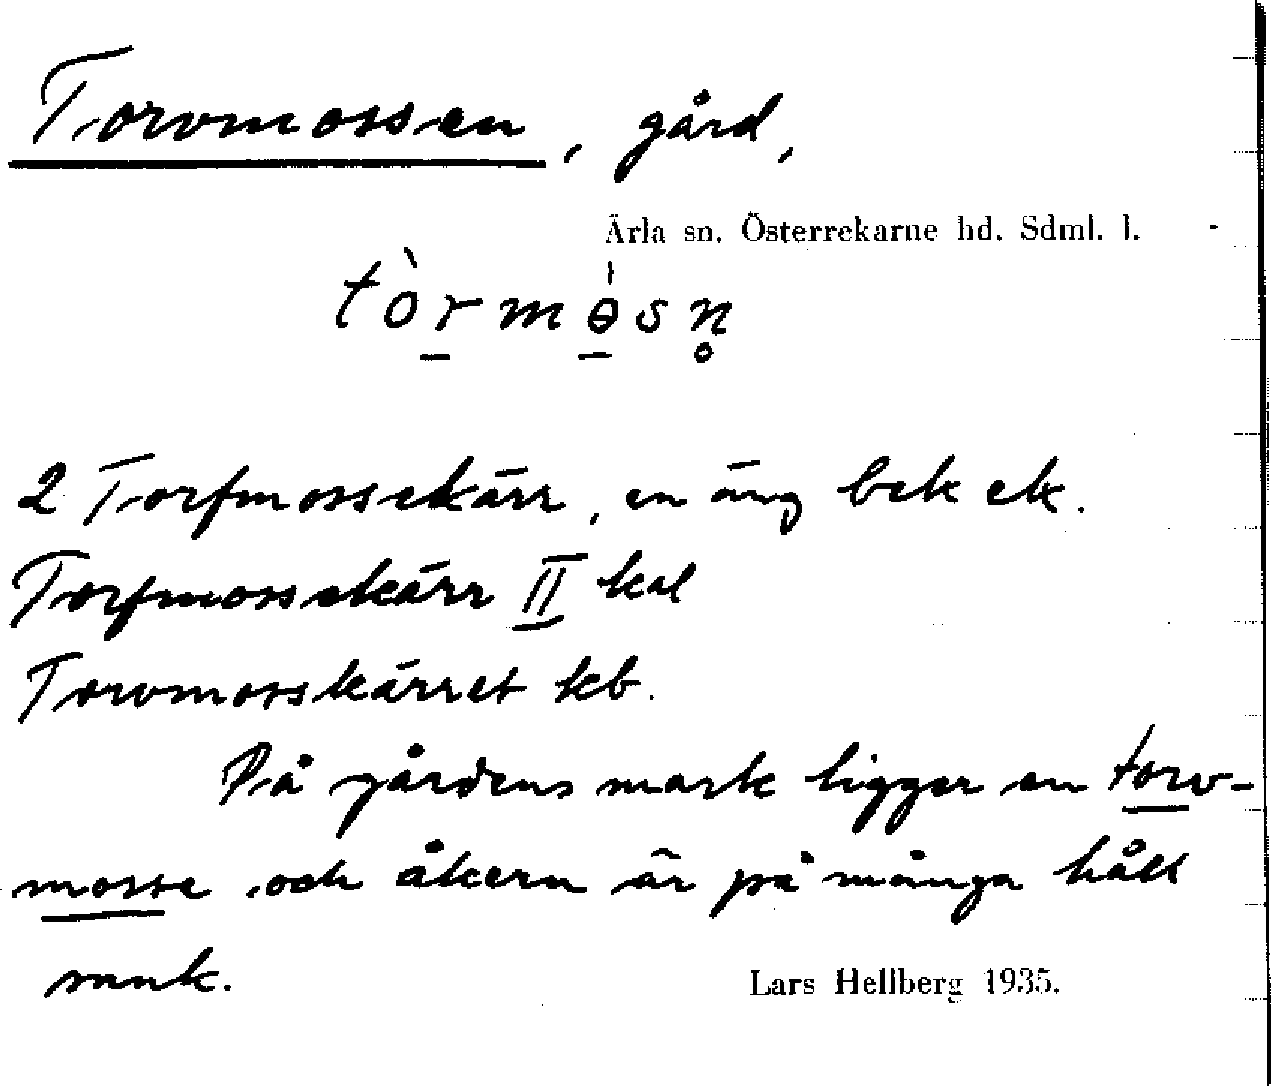 Torvmossen, gård,
Ärla sn. Österrekarne hd. Sdml. l.
tòrmɵ̀sn̥
2 Torfmossekärr, en äng bek ek.
Torfmossekärr II kal
Torvmosskärret kb.
På gårdens mark ligger en torv-
mosse och åkern är på många håll
sank.
Lars Hellberg 1935.